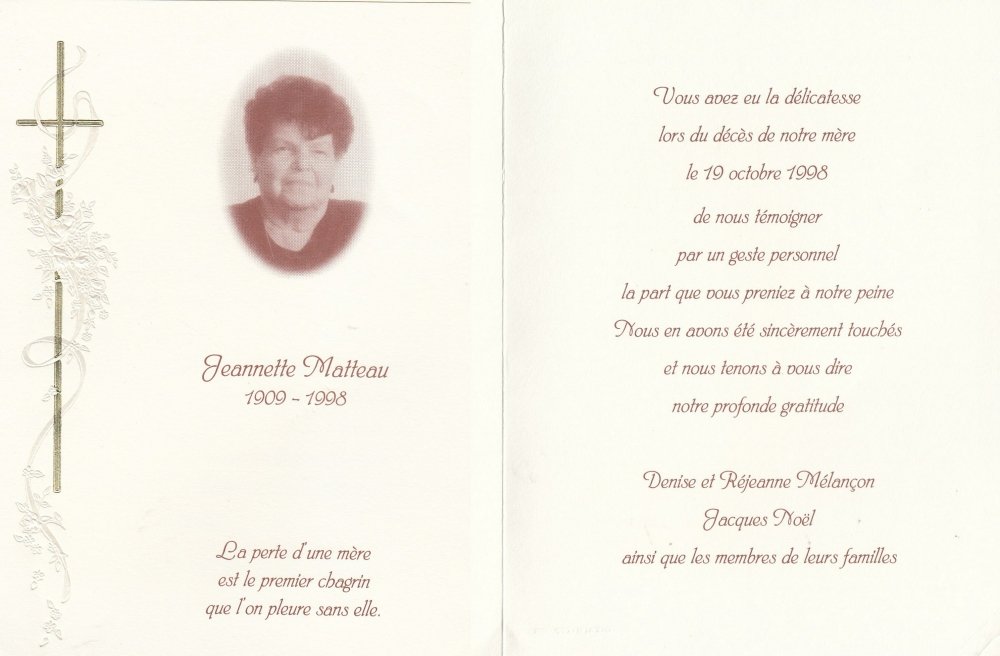 Jeannette Matteau
1909 - 1998
La perte d'une mère
est le premier chagrin
que l'on pleure sans elle.
Vous avez eu la délicatesse
lors du décès de notre mère
le 19 octobre 1998
de nous témoigner
par un geste personnel
la part que vous preniez à notre peine
Nous en avons été sincèrement touchés
et nous tenons à vous dire
notre profonde gratitude
Denise et Réjeanne Mélançon
Jacques Noël
ainsi que les membres de leurs familles